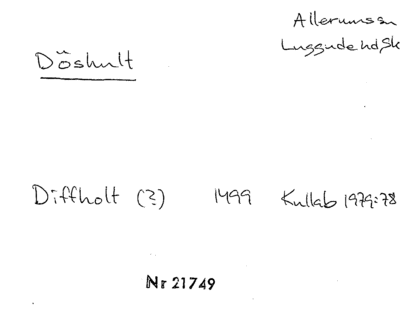 Allerums sn
Luggude hd, Sk
Döshult
Diffholt (?) 1499 Kullab 1979:78
Nr 21749